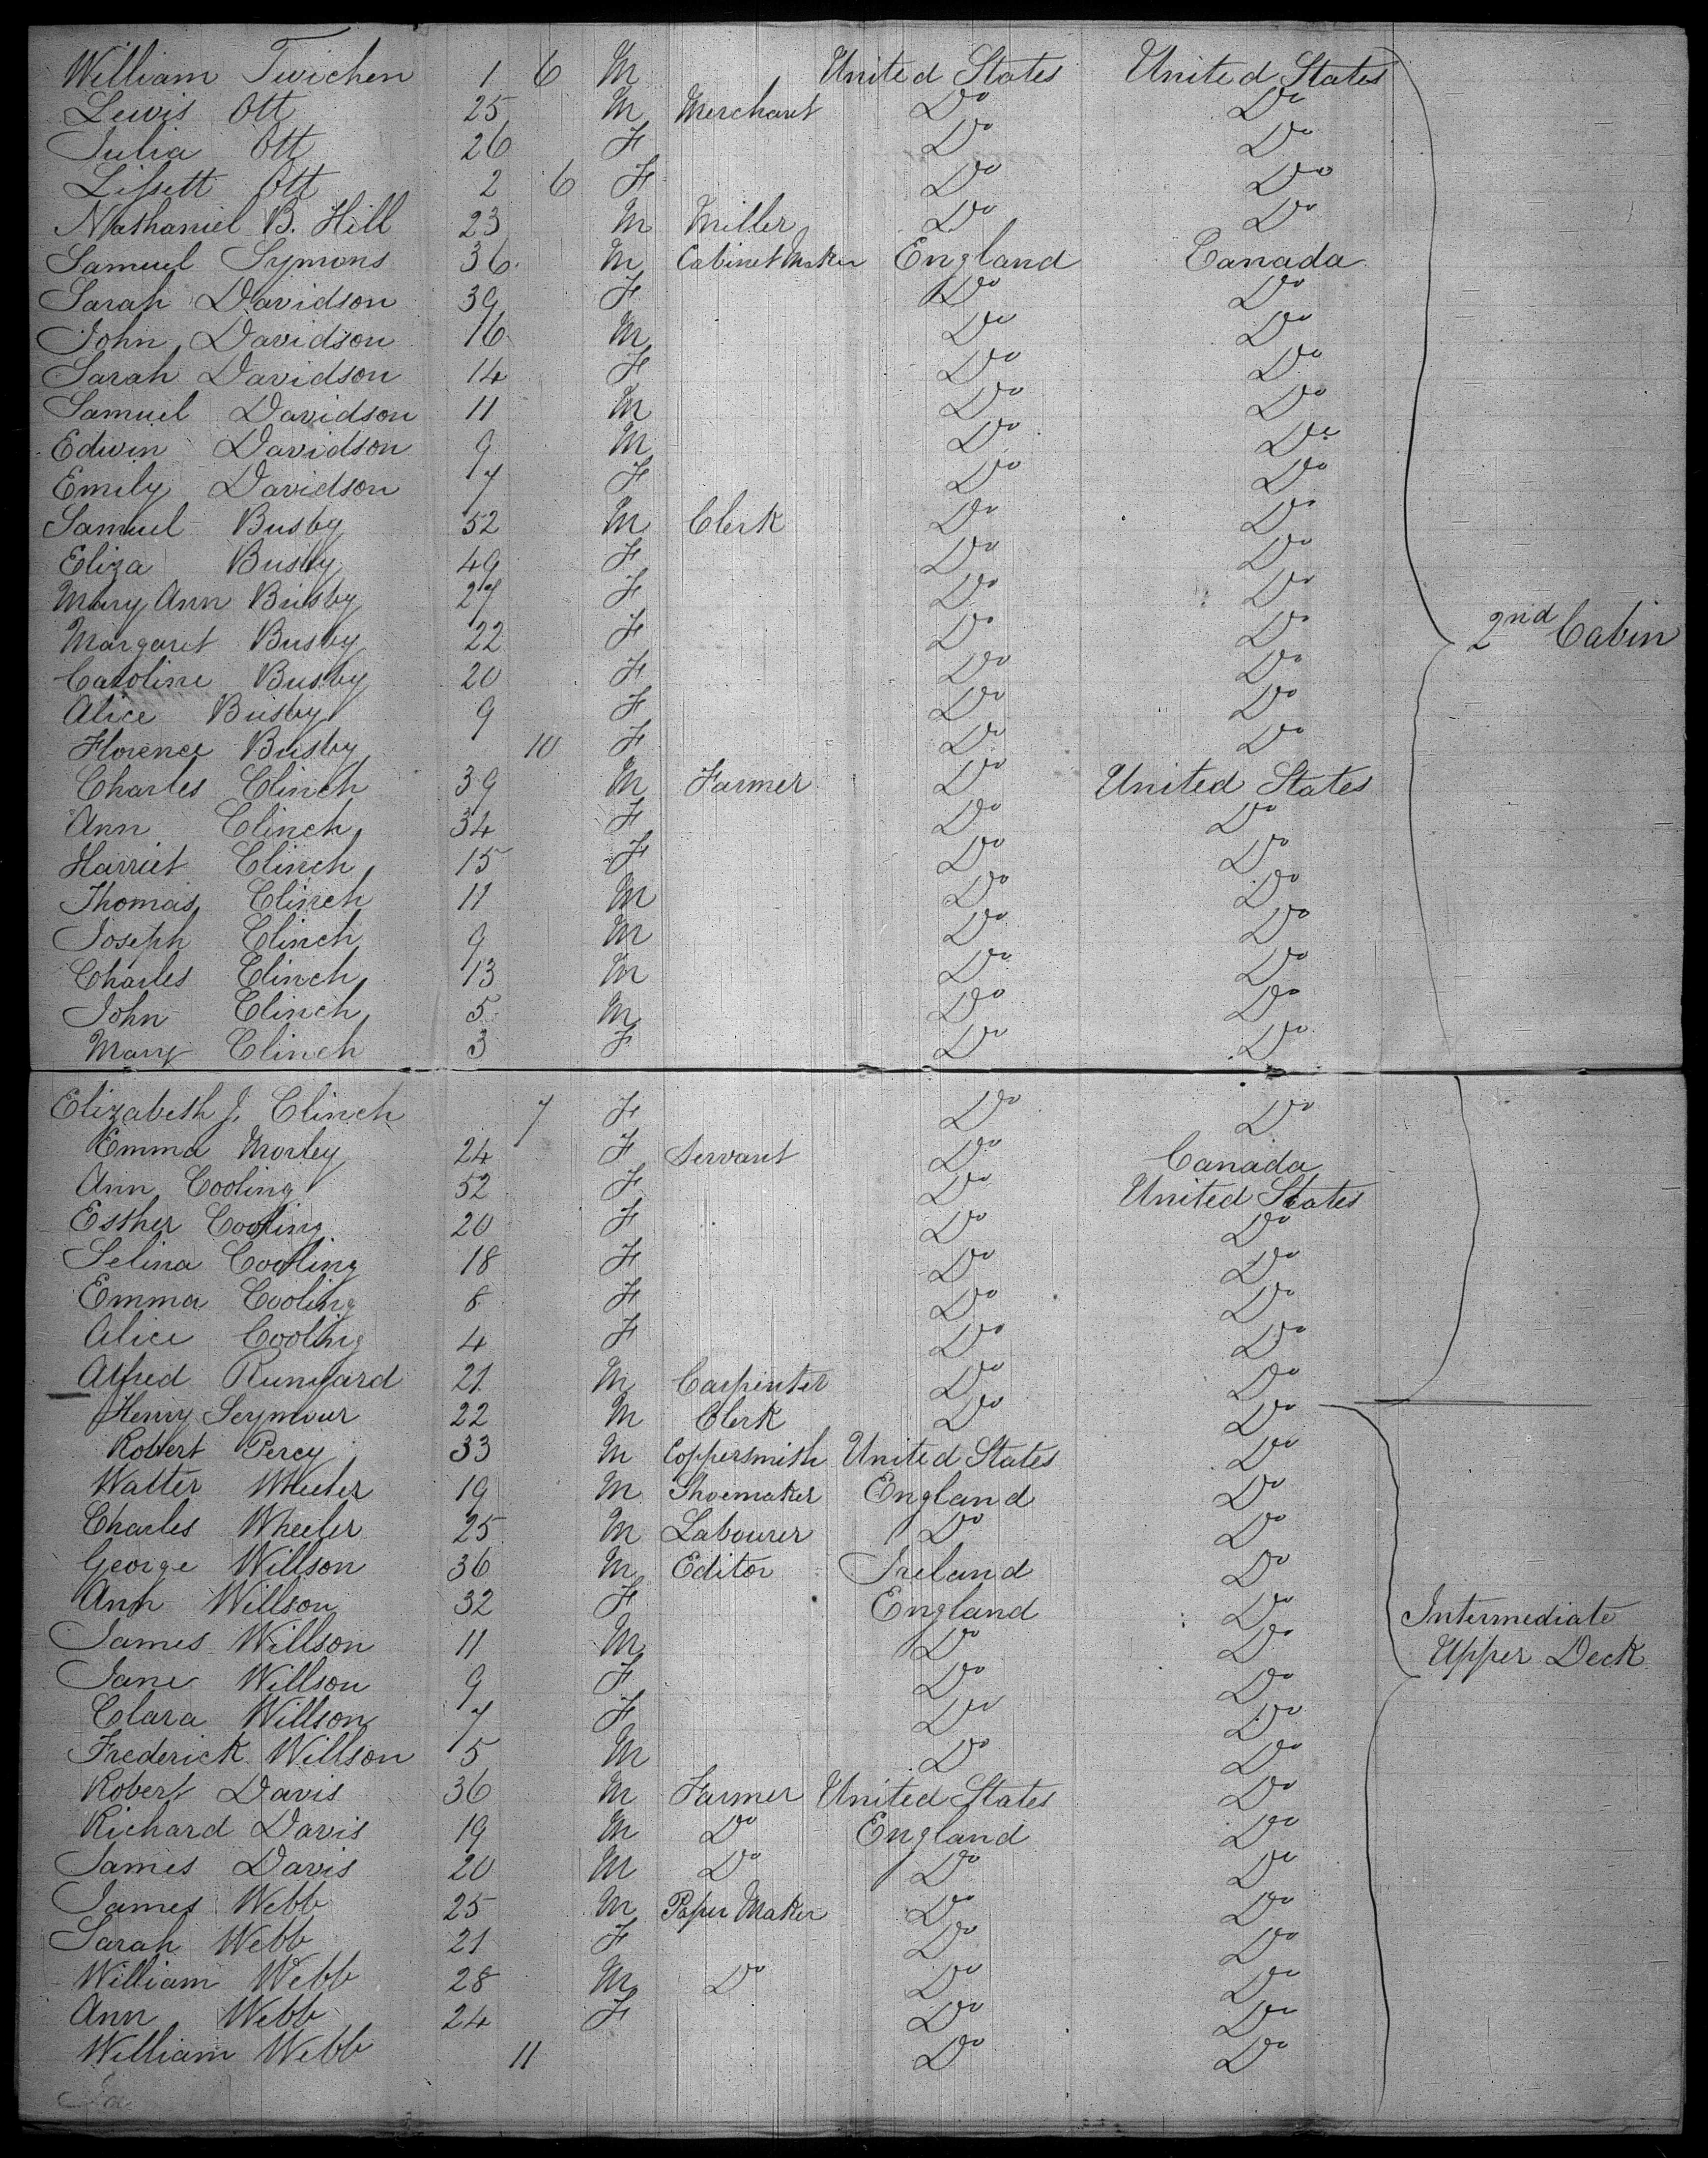 William Twichen 1 6 M United States United States
Lewis Ott 25 M Merchant Do Do
Julia Ott 26 F Do Do
Lissett Ott 2 6 F Do Do
Nathaniel B. Hill 23 M Miller Do Do
Samuel Symons 36 M Cabinet Maker England Canada
Sarah Davidson 39 F Do Do
John Davidson 16 M Do Do
Sarah Davidson 14 F Do Do
Samuel Davidson 11 M Do Do
Edwin Davidson 9 M Do Do
Emily Davidson 7 F Do Do
Samuel Busby 52 M Clerk Do Do
Eliza Busby 49 F Do Do
Mary Ann Busby 27 F Do Do
Margaret Busby 22 F Do Do 2nd Cabin
Caroline Busby 20 F Do Do
Alice Busby 9 F Do Do
Florence Busby 10 F Do Do
Charles Clinch 39 M Farmer Do United States
Ann Clinch 34 F Do Do
Harriet Clinch 15 F Do Do
Thomas Clinch 11 M Do Do
Joseph Clinch 9 M Do Do
Charles Clinch 13 M Do Do
John Clinch 5 M Do Do
Mary Clinch 3 F Do Do
Elizabeth J. Clinch 7 F Do Do
Emma Morley 24 F Servant Do Canada
Ann Cooling 52 F Do United States
Esther Cooling 20 F Do Do
Selina Cooling 18 F Do Do
Emma Cooling 8 F Do Do
Alice Cooling 4 F Do Do
Alfred Runyard 21 M Carpenter Do Do
Henry Seymour 22 M Clerk Do Do
Robert Percy 33 M Coppersmith United States Do
Walter Wheeler 19 M Shoemaker England Do
Charles Wheeler 25 M Labourer Do Do
George Willson 36 M Editor Ireland Do
Ann Willson 32 F England Do Intermediate
James Willson 11 M Do Do Upper Deck
Jane Willson 9 F Do Do
Clara Willson 7 F Do Do
Frederick Willson 5 M Do Do
Robert Davis 36 M Farmer United States Do
Richard Davis 19 M Do England Do
James Davis 20 M Do Do Do
James Webb 25 M Paper Maker Do Do
Sarah Webb 21 F Do Do
William Webb 28 M Do Do Do
Ann Webb 24 F Do Do
William Webb 11 Do Do